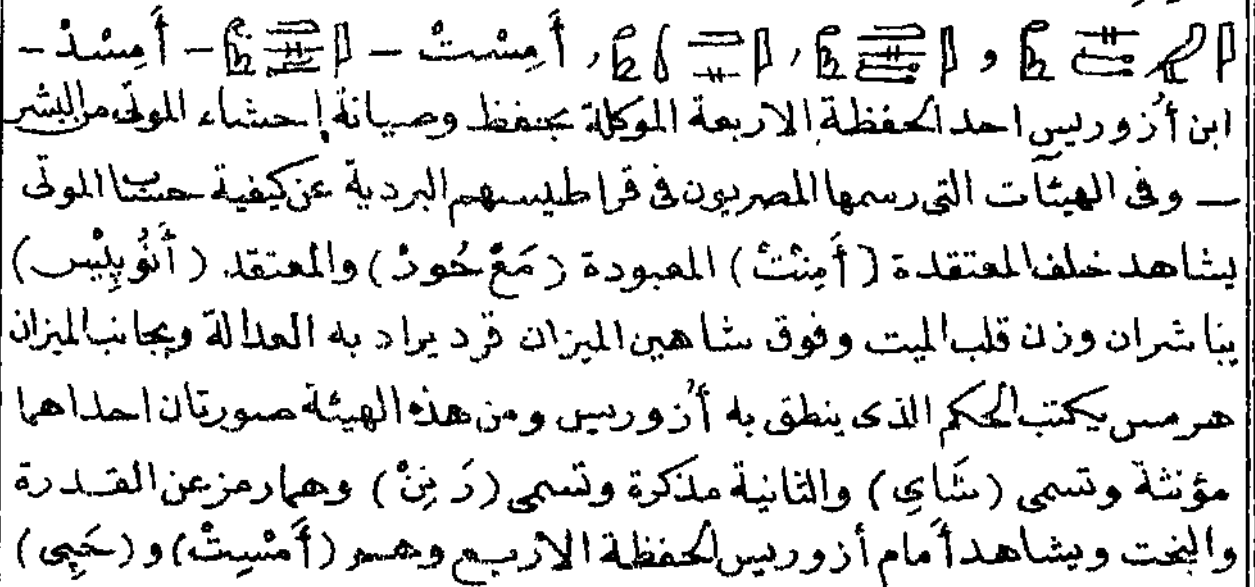 و , , أَمِسْتْ – – أَمِسْدْ –
ابن أُزوريس احد الحفظة الاربعة الموكلة بحفظ وصيانة إحشاء الموتى من البشر
— وفى الهيئآت التى رسمها المصريون فى قراطيسهم البردية عن كيفية حساب الموتى
يشاهد خلف المعتقدة (أَمِنْتْ) المعبودة (مَعْ خُودْ) والمعتقد (أَنُوبِيْس)
يباشران وزن قلب الميت وفوق شاهين الميزان قرد يراد به العدالة وبجانب الميزان
هرمس يكتب الحكم الذى ينطق به أُزوريس ومن هذه الهيئة صورتان احداهما
مؤنثة وتسمى (شَاىِ) والثانية مذكرة وتسمى (رَنِنْ) وهما رمز عن القدرة
والبخت ويشاهد أمام أزوريس الحفظة الاربع وهم (أَمْسِتْ) و (حَپِى)